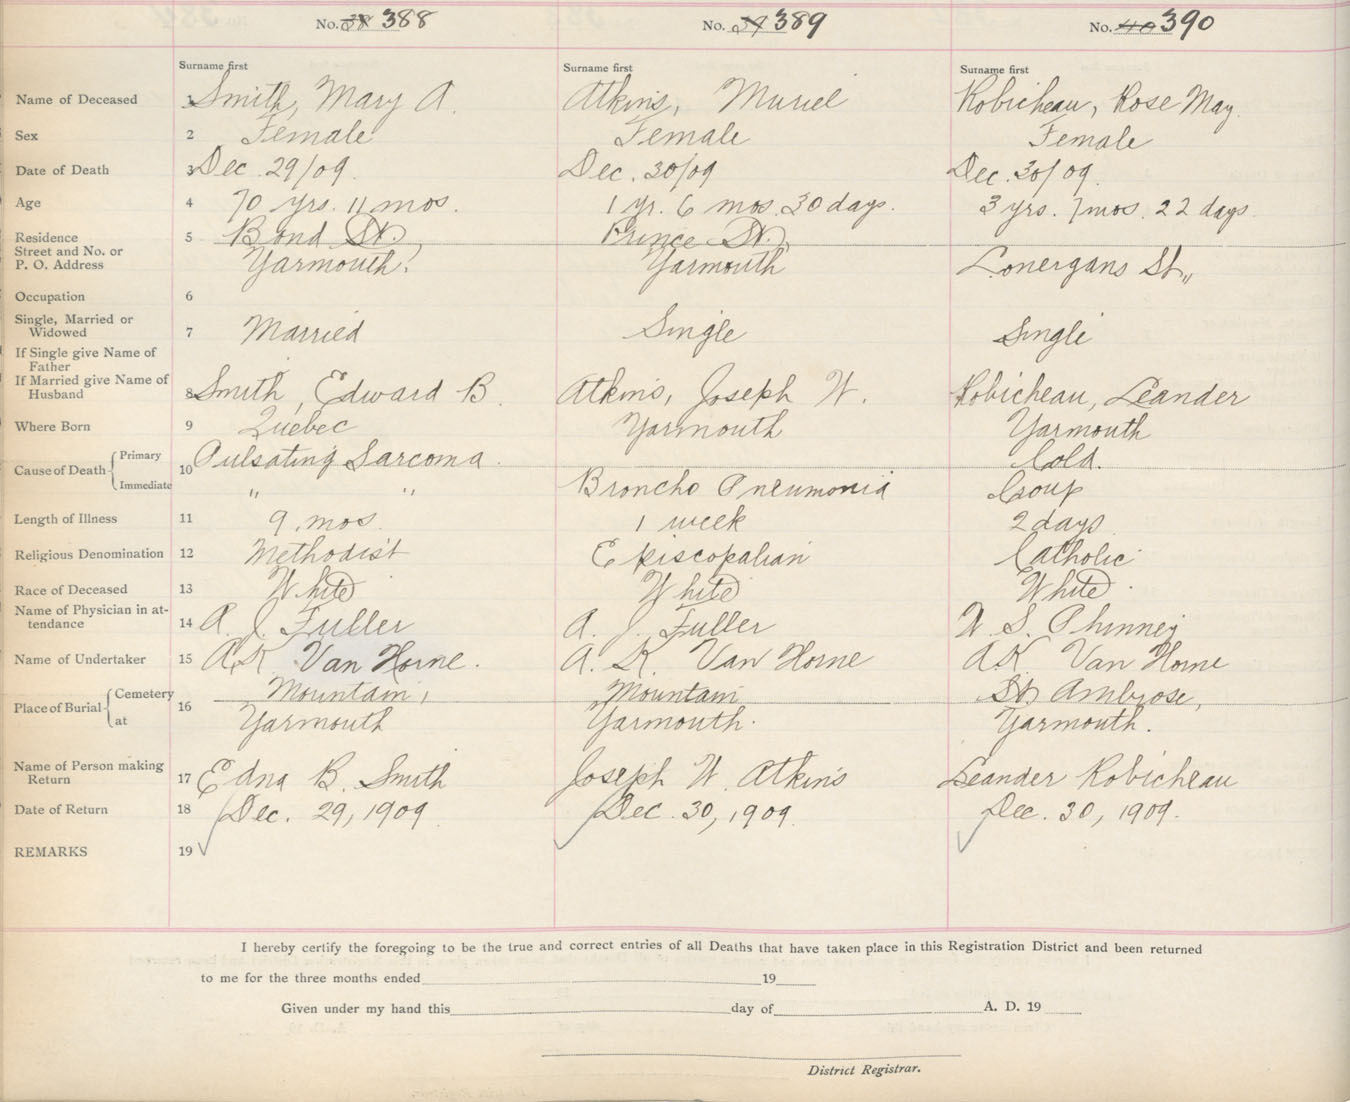 No. 38 388 No. 39 389 No. 40 390
Surname first Surname first Surname first
Name of Deceased 1 Smith, Mary A. Atkins, Muriel Robicheau, Rose May.
Sex 2 Female Female Female
Date of Death 3 Dec. 29/09. Dec. 30/09 Dec. 30/09.
Age 4 70 yrs. 11 mos. 1 yr. 6 mos. 30 days. 3 yrs. 7 mos. 22 days.
Residence 5 Bond St., Prince St.,
Street and No. or
P. O. Address Yarmouth. Yarmouth Lonergans St.,
Occupation 6
Single, Married or
Widowed 7 Married Single Single
If Single give Name of
Father
If Married give Name of
Husband 8 Smith, Edward B. Atkins, Joseph W. Robicheau, Leander
Where Born 9 Quebec Yarmouth Yarmouth
Cause of Death Primary 10 Pulsating Sarcoma. Cold.
Immediate " " Broncho Pneumonia Croup
Length of Illness 11 9 mos. 1 week 2 days
Religious Denomination 12 Methodist Episcopalian Catholic
Race of Deceased 13 White White White.
Name of Physician in at-
tendance 14 A. J. Fuller A. J. Fuller W. S. Phinney
Name of Undertaker 15 A.K. Van Horne. A. K. Van Horne A.K. Van Horne
Place of Burial Cemetery 16 Mountain, Mountain St. Ambrose,
at Yarmouth Yarmouth. Yarmouth.
Name of Person making
Return 17 Edna B. Smith Joseph W. Atkins Leander Robicheau
Date of Return 18 Dec. 29, 1909. Dec. 30, 1909. Dec. 30, 1909.
REMARKS 19
I hereby certify the foregoing to be the true and correct entries of all Deaths that have taken place in this Registration District and been returned
to me for the three months ended 19
Given under my hand this day of A. D. 19
District Registrar.